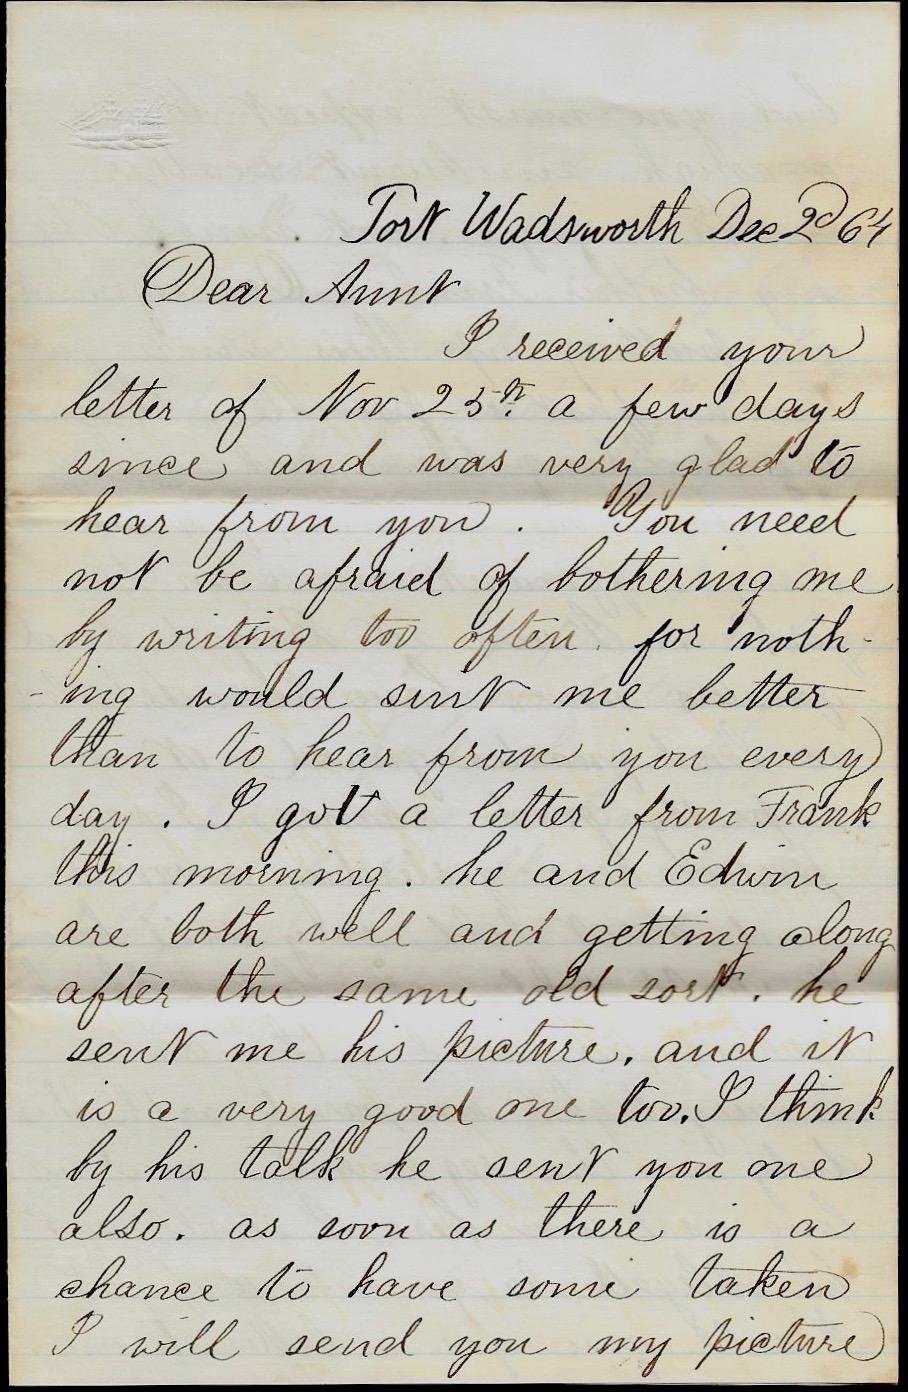 Fort Wadsworth Dec 2d 64
Dear Aunt
I received your
letter of Nov 25th. a few days
since and was very glad to
hear from you. You need
not be afraid of bothering me
by writing too often. for noth-
-ing would suit me better
than to hear from you every
day. I got a letter from Frank
this morning. he and Edwin
are both well and getting along
after the same old sort. he
sent me his picture. and it
is a very good one too. I think
by his talk he sent you one
also. as soon as there is a
chance to have some taken
I will send you my picture